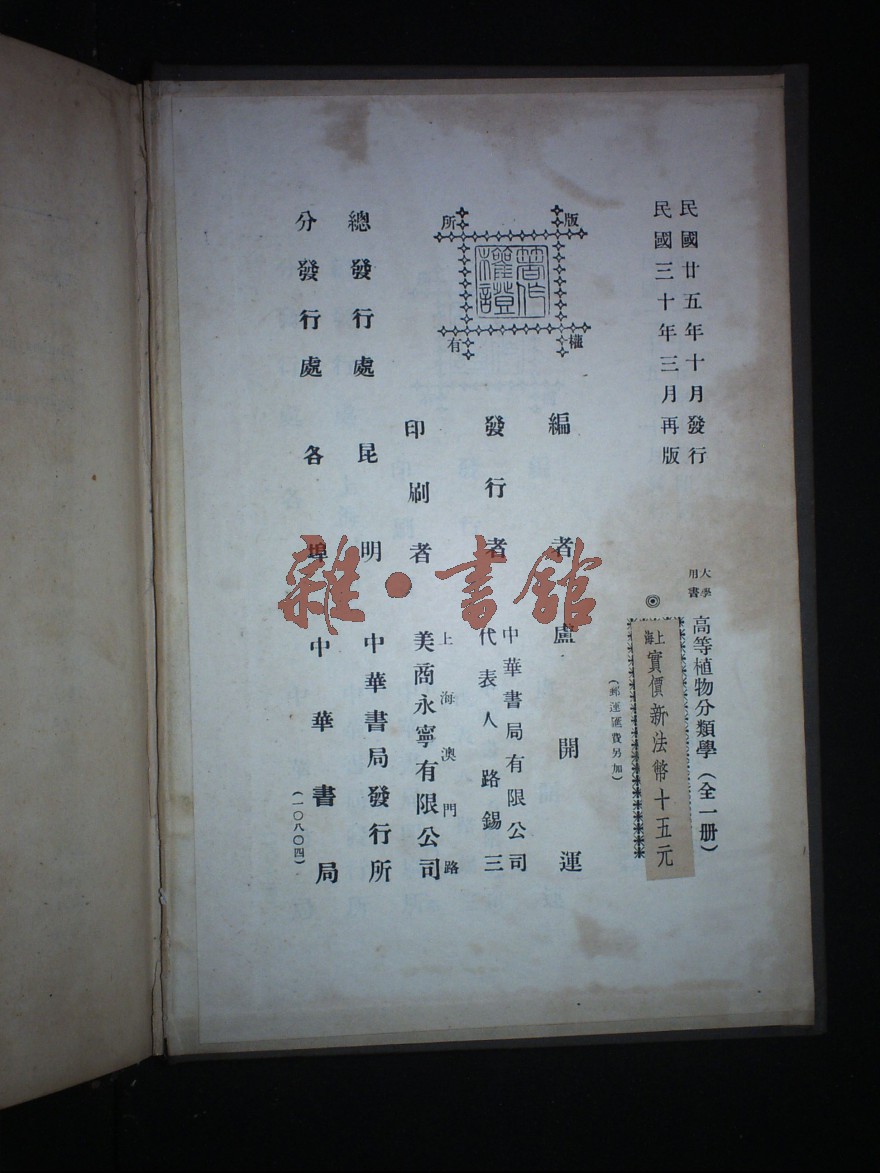 民國廿五年十月發行
民國三十年三月再版
大學
用書
高等植物分類學(全一册)
◎
上海
實價新法幣十五元
(郵運匯費另加)
版權所有
著作權證
編者 盧開運
發行者 中華書局有限公司
代表人 路錫三
印刷者 上海澳門路
美商永寧有限公司
總發行處 昆明 中華書局發行所
分發行處 各埠 中華書局
(一〇八〇四)
雜·書館